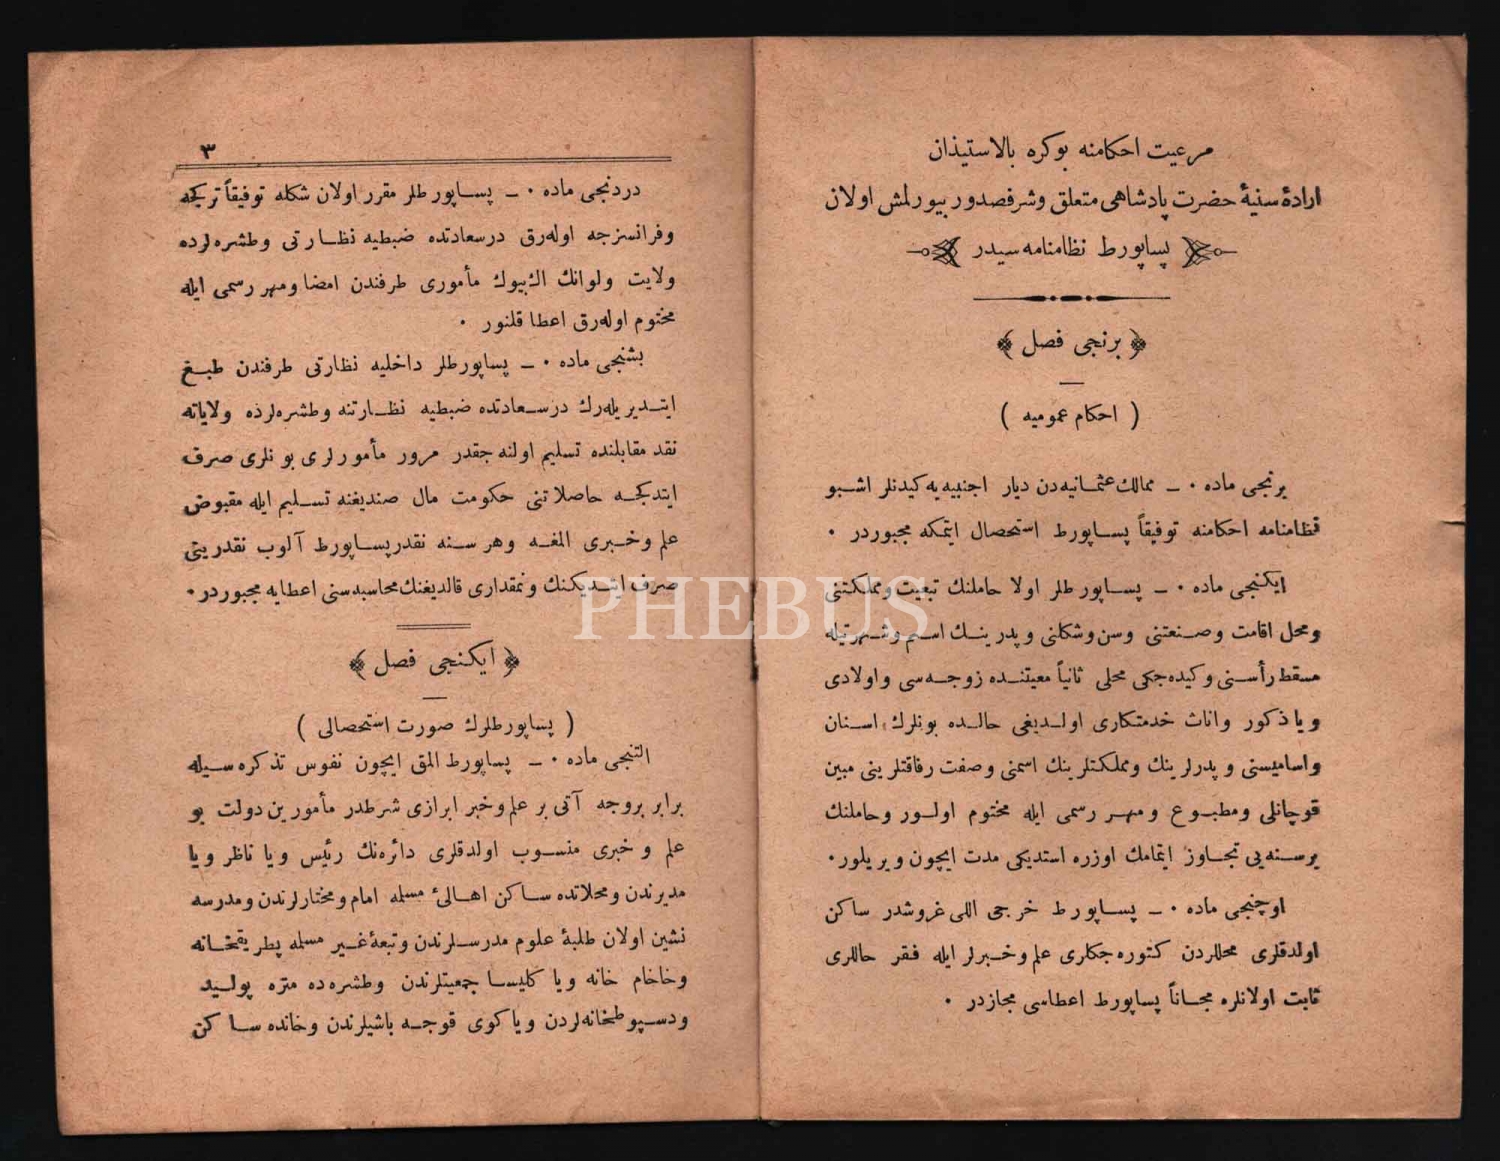 مرعيت احكامنه بوكره بالاستيذان
ارادۀ سنيۀ حضرت پادشاهى متعلق وشرفصدور بيورلمش اولان
پساپورط نظامنامه سيدر
﴿ برنجى فصل ﴾
( احكام عموميه )
برنجى ماده ٠ ــ ممالك عثمانيه دن ديار اجنبيه يه كيدنلر اشبو
نظامنامه احكامنه توفيقاً پساپورط استحصال ايتمكه مجبوردر ٠
ايكنجى ماده ٠ ــ پساپورطلر اولا حاملنك تبعيت ومملكتنى
ومحل اقامت وصنعتنى وسن وشكلنى وپدرينك اسم وشهرتيله
مسقط رأسنى وكيده جكى محلى ثانياً معيتنده زوجه سى واولادى
ويا ذكور واناث خدمتكارى اولديغى حالده بونلرك اسنان
واساميسنى وپدرلرينك ومملكتلرينك اسمنى وصفت رفاقتلرينى مبين
قوچانلى ومطبوع ومهر رسمى ايله مختوم اولور وحاملنك
برسنه يى تجاوز ايتمامك اوزره استديكى مدت ايچون ويريلور ٠
اوچنجى ماده ٠ ــ پساپورط خرجى اللى غروشدر ساكن
اولدقلرى محللردن كتوره جكلرى علم وخبرلر ايله فقر حاللرى
ثابت اولانلره مجاناً پساپورط اعطاسى مجازدر ٠
٣
دردنجى ماده ٠ ــ پساپورطلر مقرر اولان شكله توفيقاً تركجه
وفرانسزجه اوله رق درسعادتده ضبطيه نظارتى وطشره لرده
ولايت ولوانك اك بيوك مأمورى طرفندن امضا ومهر رسمى ايله
مختوم اوله رق اعطا قلنور ٠
بشنجى ماده ٠ ــ پساپورطلر داخليه نظارتى طرفندن طبع
ايتديريله رك درسعادتده ضبطيه نظارتنه وطشره لرده ولاياته
نقد مقابلنده تسليم اولنه جقدر مرور مأمورلرى بونلرى صرف
ايتدكجه حاصلاتنى حكومت مال صنديغنه تسليم ايله مقبوض
علم وخبرى المغه وهر سنه نقدر پساپورط آلوب نقدرينى
صرف ايتديكنك ونمقدارى قالديغنك محاسبه سنى اعطايه مجبوردر ٠
﴿ ايكنجى فصل ﴾
( پساپورطلرك صورت استحصالى )
التنجى ماده ٠ ــ پساپورط المق ايچون نفوس تذكره سيله
برابر بروجه آتى بر علم وخبر ابرازى شرطدر مأمورين دولت بو
علم و خبرى منسوب اولدقلرى دائره نك رئيس ويا ناظر ويا
مديرندن ومحلاتده ساكن اهالئ مسلمه امام ومختارلرندن ومدرسه
نشين اولان طلبۀ علوم مدرسلرندن وتبعۀ غير مسلمه پطريقخانه
وخاخام خانه ويا كليسا جمعيتلرندن وطشره ده متره پوليد
ودسپوطخانه لردن وياكوى قوجه باشيلرندن وخانده ساكن
PHEBUS